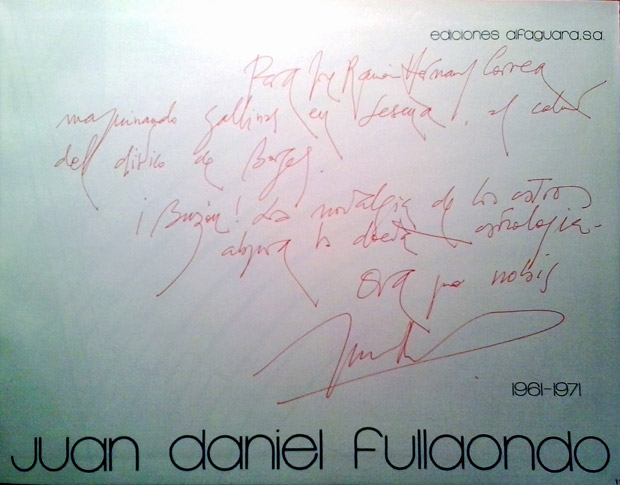 ediciones alfaguara.s.a.
Para José Ramón Hernández Correa
maquinando gallinas en Seseña, al calor
del de Borges.
¡Buzón! La nostalgia de los astros
la docta astrología.
Ora pro nobis
1961-1971
juan daniel fullaondo